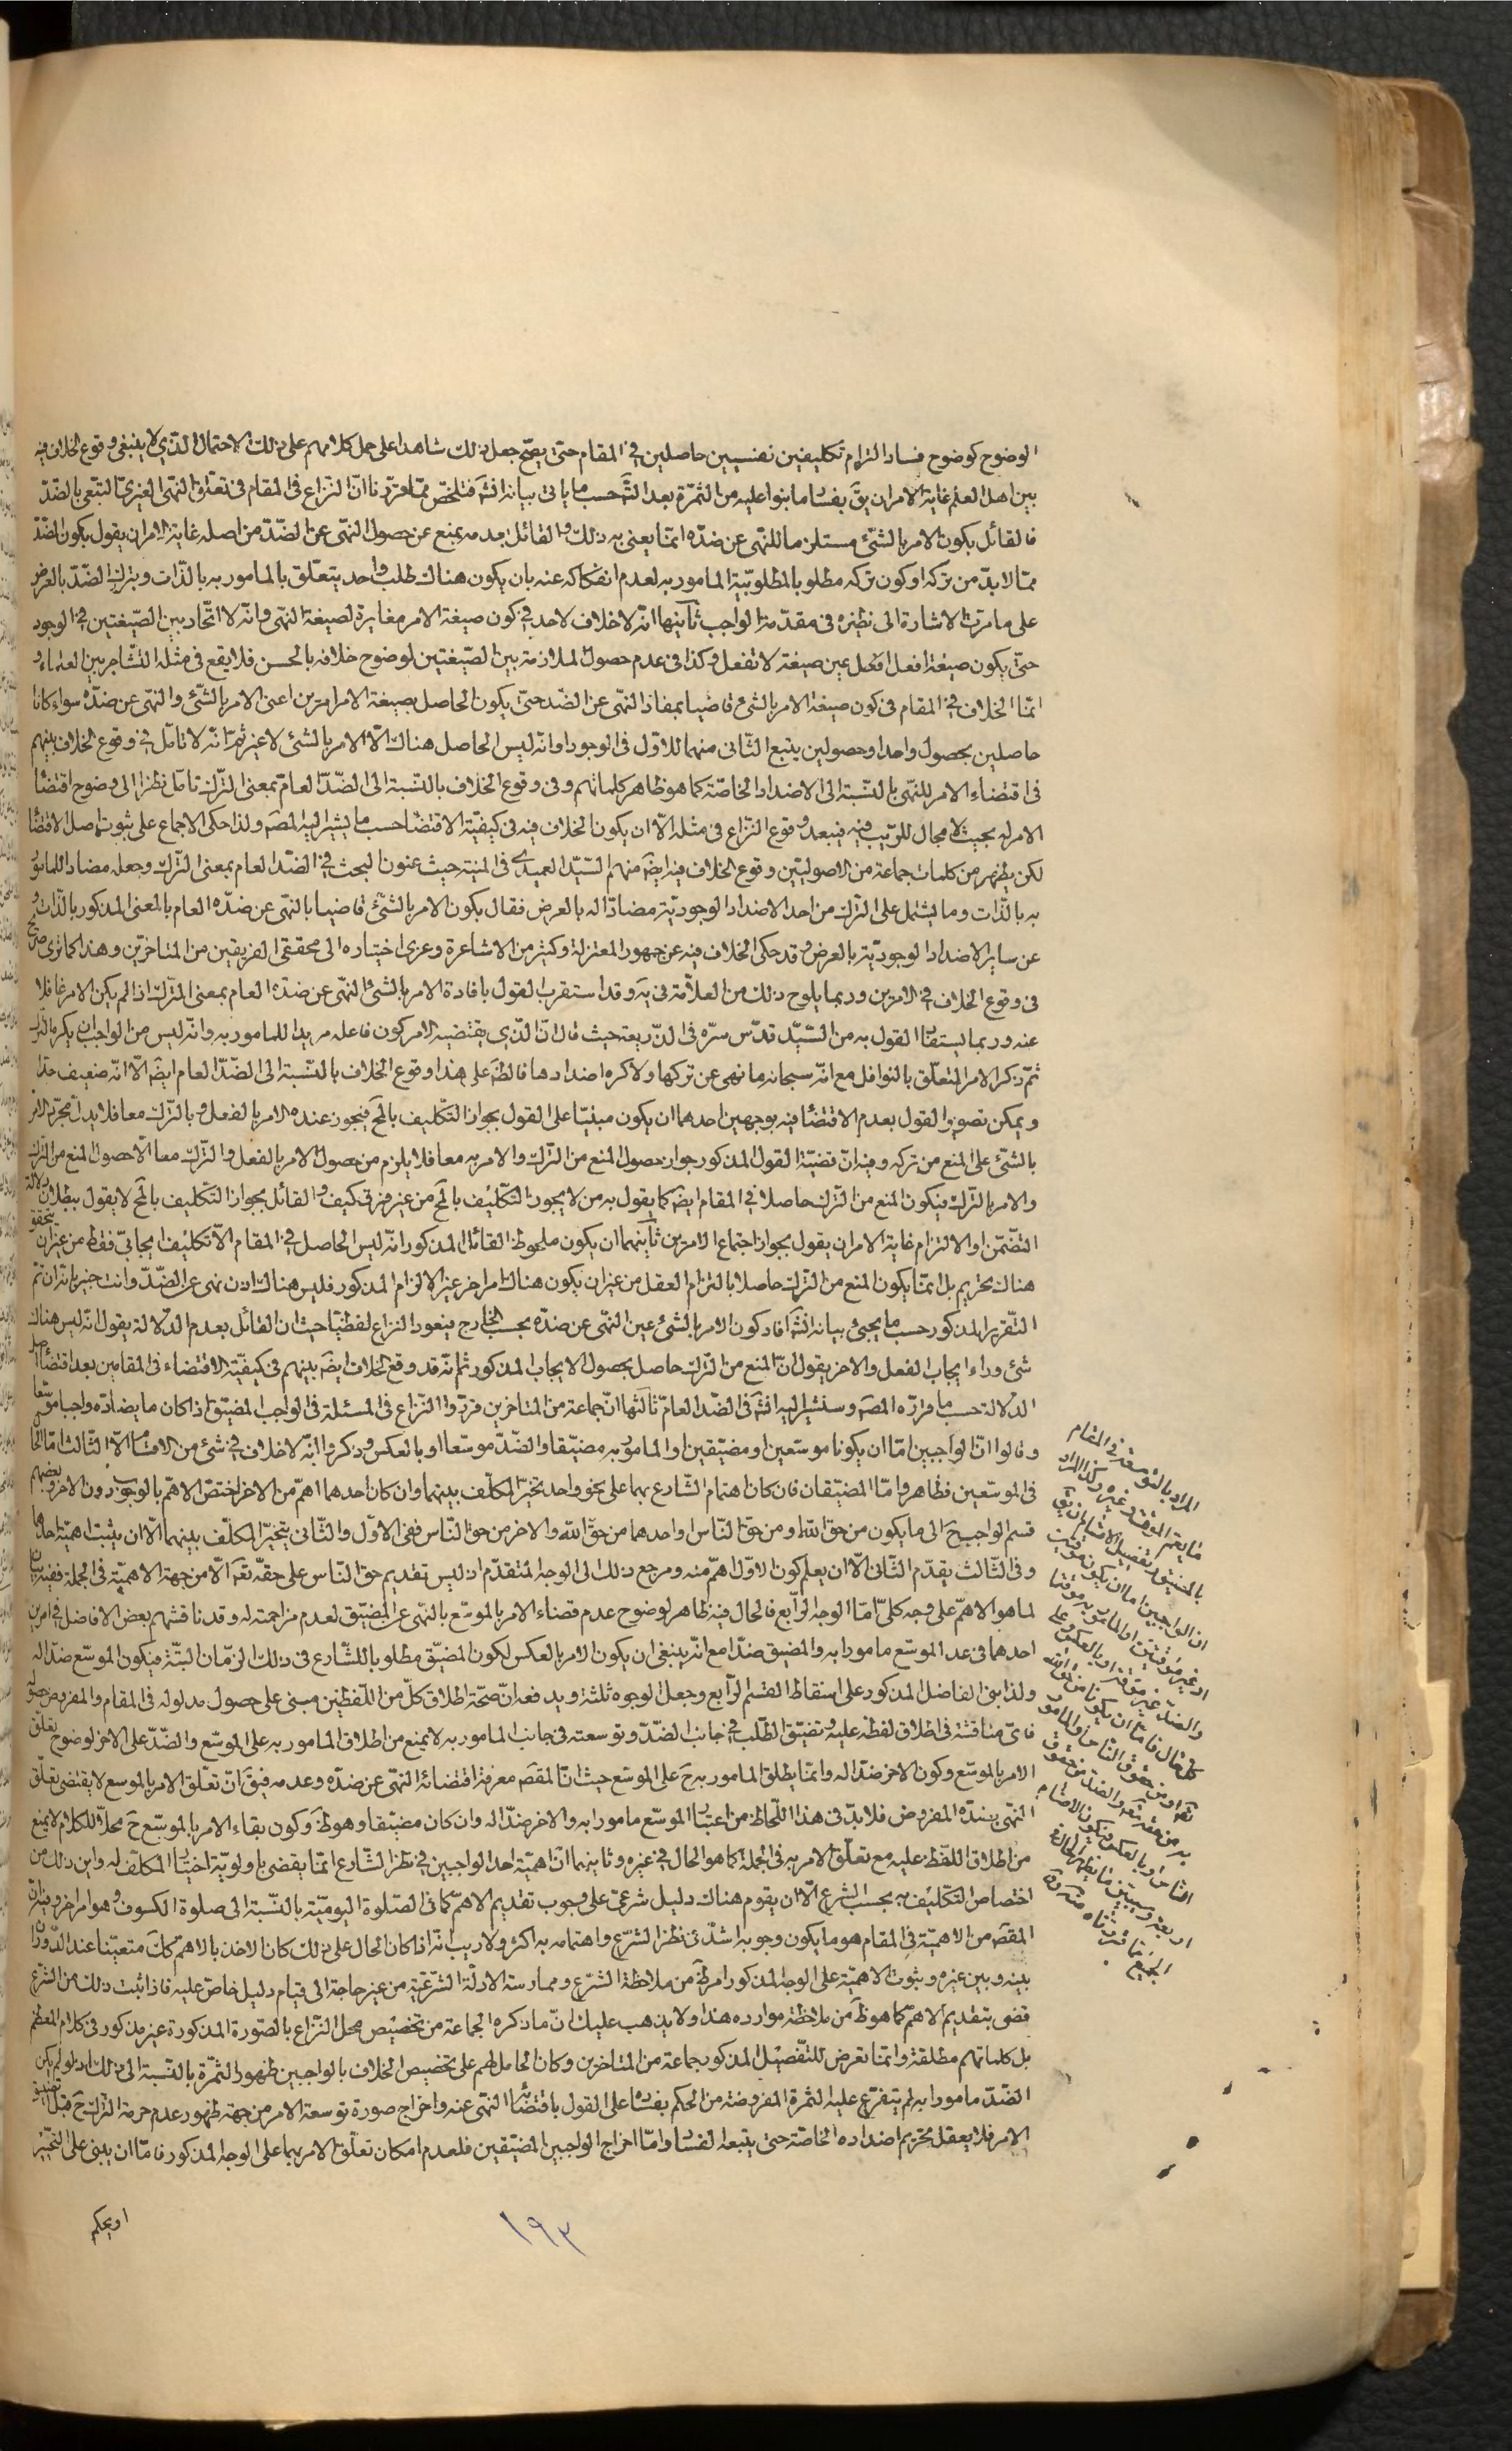 الوضوح كوضوح فساد التزام تكليفين نفسيين حاصلين في المقام حتى يصح جعل ذلك شاهدا على حمل كلامهم على ذلك الاحتمال الذي لا ينبغي وقوع الخلاف فيه
بين اهل العلم غاية الامر ان يق بفساد ما بنوا عليه من الثمرة بعد الثه حسب ما ياتى بيانه انشه فتلخص مما قررنا ان النزاع فى المقام فى تعلق النهى الغيرى التبعى بالضد
فالقائل بكون الامر بالشئ مستلزما للنهى عن ضده انما يعنى به ذلك والقائل بعدمه يمنع عن حصول النهى عن الضد من اصله غاية الامر ان يقول بكون الضد
مما لا بد من تركه او كون تركه مطلوبا بالمطلوبية المامور به لعدم انفكاكه عنه بان يكون هناك طلب واحد يتعلق بالمامور به بالذات وبترك الضد بالعرض
على ما مرت الاشارة الى نظيره فى مقدمة الواجب ثانيها انه لا خلاف لاحد في كون صيغة الامر مغايرة لصيغة النهى وانه لا اتحاد بين الصيغتين في الوجود
حتى يكون صيغة افعل عين صيغة لا تفعل وكذا فى عدم حصول الملازمة بين الصيغتين لوضوح خلافه بالحسن فلا يقع فى مثله التشاجر بين العلماء و
انما الخلاف في المقام فى كون صيغة الامر بالشئ قاضيا بمفاد النهى عن الضد حتى يكون الحاصل بصيغة الامر امرين اعنى الامر بالشئ والنهى عن ضده سواء كانا
حاصلين بحصول واحد او حصولين يتبع الثانى منهما للاول فى الوجود او انه ليس الحاصل هناك الا الامر بالشئ لا غير ثم انه لا تامل في وقوع الخلاف بينهم
فى اقتضاء الامر للنهى بالنسبة الى الاضداد الخاصة كما هو ظاهر كلماتهم وفى وقوع الخلاف بالنسبة الى الضد العام بمعنى الترك تامل نظرا الى وضوح اقتضاء
الامر له بحيث لا مجال للريب فيه فيبعد وقوع النزاع فى مثله الا ان يكون الخلاف فيه فى كيفية الاقتضاء حسب ما يشير اليه المصه ولذا حكى الاجماع على ثبوت اصل الاقتضاء
لكن يظهر من كلمات جماعة من الاصوليين وقوع الخلاف فيه ايضه منهم السيد العميدى فى المنية حيث عنون البحث في الضد العام بمعنى الترك وجعله مضادا للمامور
به بالذات وما يشتمل على الترك من احد الاضداد الوجودية مضادا له بالعرض فقال بكون الامر بالشئ قاضيا بالنهى عن ضده العام بالمعنى المذكور بالذات و
عن ساير الاضداد الوجودية بالعرض وقد حكى الخلاف فيه عن جمهور المعتزلة وكثير من الاشاعرة وعزى اختياره الى محققى الفريقين من المتاخرين وهذا كما ترى صريح
فى وقوع الخلاف في الامرين وربما يلوح ذلك من العلامة فى يه وقد استقرب القول بافادة الامر بالشئ النهى عن ضده العام بمعنى الترك اذا لم يكن الامر غافلا
عنه وربما يستفاد القول به من السيد قدس سره فى الذريعة حيث قال ان الذي يقتضيه الامر كون فاعله مريدا للمامور به وانه ليس من الواجب ان يكره الترك
ثم ذكر الامر المتعلق بالنوافل مع انه سبحانه ما نهى عن تركها ولا كره اضدادها فالظه على هذا وقوع الخلاف بالنسبة الى الضد العام ايضه الا انه ضعيف جدا
ويمكن تصوير القول بعدم الاقتضاء فيه بوجهين احدهما ان يكون مبنيا على القول بجواز التكليف بالمح فيجوز عنده الامر بالفعل وبالترك معا فلا يدل مجرد الامر
بالشئ على المنع من تركه وفيه ان قضية القول المذكور جواز حصول المنع من الترك والامر به معا فلا يلزم من حصول الامر بالفعل والترك معا الا حصول المنع من الترك
والامر بالترك فيكون المنع من الترك حاصلا في المقام ايضه كما يقول به من لا يجوز التكليف بالمح من غير فرق كيف والقائل بجواز التكليف بالمح لا يقول ببطلان دلالة
التضمن او الالتزام غاية الامر ان يقول بجواز اجتماع الامرين ثانيهما ان يكون ملحوظ القائل المذكور انه ليس الحاصل في المقام الا تكليف ايجابى فقط من غير ان يتحقق
هناك تحريم بل انما يكون المنع من الترك حاصلا بالتزام العقل من غير ان يكون هناك امر اخر غير الالزام المذكور فليس هناك اذن نهى عن الضد وانت خبير بانه ان تم
التقرير المذكور حسب ما يجيئ بيانه انشه افاد كون الامر بالشئ عين النهى عن ضده بحسب الخارج فيعود النزاع لفظيا حيث ان القائل بعدم الدلالة يقول انه ليس هناك
شئ وراء ايجاب الفعل والاخر يقول ان المنع من الترك حاصل بحصول الايجاب المذكور ثم انه قد وقع الخلاف ايضه بينهم فى كيفية الاقتضاء فى المقامين بعد اقتضاء اصل
الدلالة حسب ما قرره المصه وسنشير اليه انشه فى الضد العام ثالثها ان جماعة من المتاخرين قرروا النزاع فى المسئلة فى الواجب المضيق اذا كان ما يضاده واجبا موسعا
وقالوا ان الواجبين اما ان يكونا موسعين او مضيقين او المامور به مضيقا والضد موسعا او بالعكس وذكروا انه لا خلاف في شئ من الاقسام الا الثالث اما الحال
فى الموسعين فظاهر واما المضيقان فان كان اهتمام الشارع بهما على نحو واحد تخير المكلف بينهما وان كان احدهما اهم من الاخر اختص الاهم بالوجوب دون الاخر وبعضهم
قسم الواجب ح الى ما يكون من حق الله ومن حق الناس او احدهما من حق الله والاخر من حق الناس ففى الاول والثانى يتخير المكلف بينهما الا ان يثبت اهمية احدهما
وفى الثالث يقدم الثانى الا ان يعلم كون الاول اهم منه ومرجع ذلك الى الوجه المتقدم اذ ليس تقديم حق الناس على حقه تعه الا من جهة الاهمية فى الجملة ففيه بيان
لما هو الاهم على وجه كلى اما الوجه الرابع فالحال فيه ظاهر لوضوح عدم قضاء الامر بالموسع بالنهى عن المضيق لعدم مزاحمته له وقد ناقشهم بعض الافاضل في امرين
احدهما فى عد الموسع مامورا به والمضيق ضدا مع انه ينبغى ان يكون الامر بالعكس لكون المضيق مطلوبا للشارع فى ذلك الزمان البتة فيكون الموسع ضدا له
ولذا بنى الفاضل المذكور على اسقاط القسم الرابع وجعل الوجوه ثلثة ويدفعه ان صحة اطلاق كل من اللفظين مبنى على حصول مدلوله فى المقام والمفروض حصوله
فاى مناقشة فى اطلاق لفظه عليه وتضيق الطلب في جانب الضد وتوسعته فى جانب المامور به لا يمنع من اطلاق المامور به على الموسع والضد على الاخر لوضوح تعلق
الامر بالموسع وكون الاخر ضدا له وانما يطلق المامور به ح على الموسع حيث ان المقصه معرفة اقتضائه النهى عن ضده وعدمه فيق ان تعلق الامر بالموسع لا يقتضى تعلق
النهى بضده المفروض فلا بد فى هذا اللحاظ من اعتبار الموسع مامورا به والاخر ضدا له وان كان مضيقا وهو ظه وكون بقاء الامر بالموسع ح محلا للكلام لا يمنع
من اطلاق اللفظ عليه مع تعلق الامر به فى الجملة كما هو الحال في غيره وثانيهما ان اهمية احد الواجبين في نظر الشارع انما يقضى باولوية اختيار المكلف له واين ذلك من
اختصاص التكليف به بحسب الشرع الا ان يقوم هناك دليل شرعى على وجوب تقديم الاهم كما فى الصلوة اليومية بالنسبة الى صلوة الكسوف وهو امر اخر وفيه ان
المقصه من الاهمية في المقام هو ما يكون وجوبه اشد فى نظر الشرع واهتمامه به اكثر ولا ريب انه اذا كان الحال على ذلك كان الاخذ بالاهم كك متعينا عند الدوران
بينه وبين غيره وثبوت الاهمية على الوجه المذكور امر ظه من ملاحظة الشرع وممارسة الادلة الشرعية من غير حاجة الى قيام دليل خاص عليه فاذا ثبت ذلك من الشرع
قضى بتقديم الاهم كما هو ظه من ملاحظة موارده هذا ولا يذهب عليك ان ما ذكره الجماعة من تخصيص محل النزاع بالصورة المذكورة غير مذكور فى كلام المعظم
بل كلماتهم مطلقة وانما تعرض للتفصيل المذكور جماعة من المتاخرين وكان الحامل لهم على تخصيص الخلاف بالواجبين ظهور الثمرة بالنسبة الى ذلك اذ لو لم يكن
الضد مامورا به لم يتفرع عليه الثمرة المفروضة من الحكم بفساده على القول باقتضائه النهى عنه واخراج صورة توسعة الامر من جهة ظهور عدم حرمة الترك ح قبل تضيق
الامر فلا يعقل تحريم اضداده الخاصة حتى يتبعه الفساد واما اخراج الواجبين المضيقين فلعدم امكان تعلق الامر بهما على الوجه المذكور فاما ان يبنى على التخيير
او يحكم
١٩٣
المراد بالتوسعة في المقام
ما يعم الموقت وغيره وكذا المراد
بالمضيق وتفصيل الاقسام ان يق
ان الواجبين اما ان يكونا موقتين
او غير موقتين او المامور به موقتا
والضد غير موقت او بالعكس وعلى
كل حال فاما ان يكونا من حق الله
تعه او من حقوق الناس او المامور
به من حقه تعه والضد من حقوق
الناس او بالعكس فيكون الاقسام